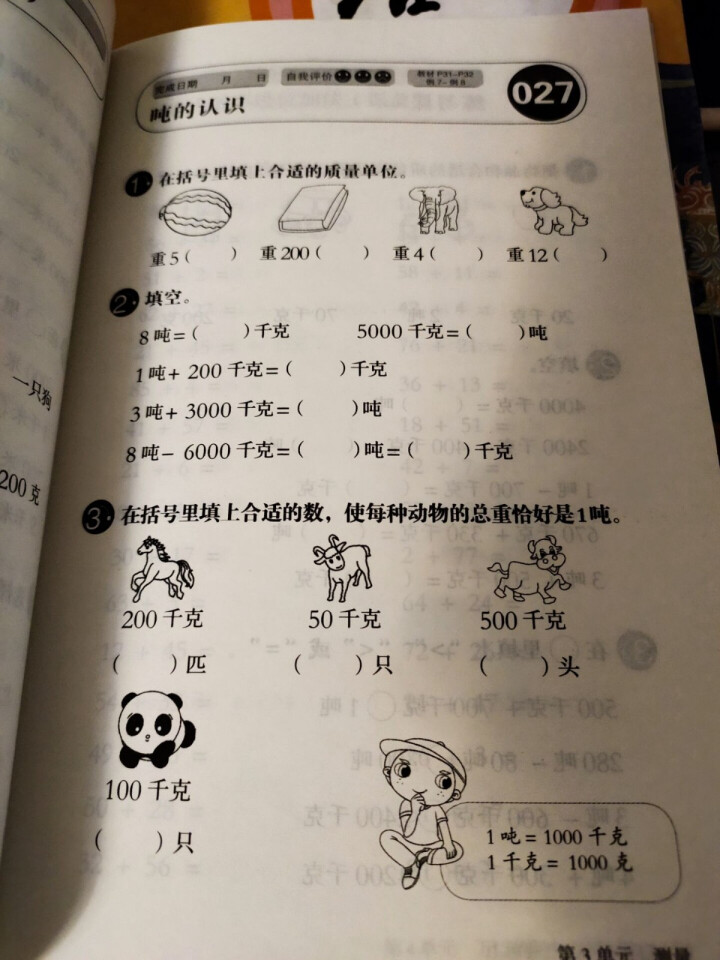 完成日期 月 日
自我评价
教材 P31~P32
例 7~例 8
027
吨的认识
1 在括号里填上合适的质量单位。
重 5 ( ) 重 200 ( ) 重 4 ( ) 重 12 ( )
2 填空。
8 吨 = ( ) 千克 5000 千克 = ( ) 吨
1 吨 + 200 千克 = ( ) 千克
3 吨 + 3000 千克 = ( ) 吨
8 吨 - 6000 千克 = ( ) 吨 = ( ) 千克
一只狗
200 克
3 在括号里填上合适的数，使每种动物的总重恰好是 1 吨。
200 千克 50 千克 500 千克
( ) 匹 ( ) 只 ( ) 头
100 千克
( ) 只
1 吨 = 1000 千克
1 千克 = 1000 克
第 3 单元 测量